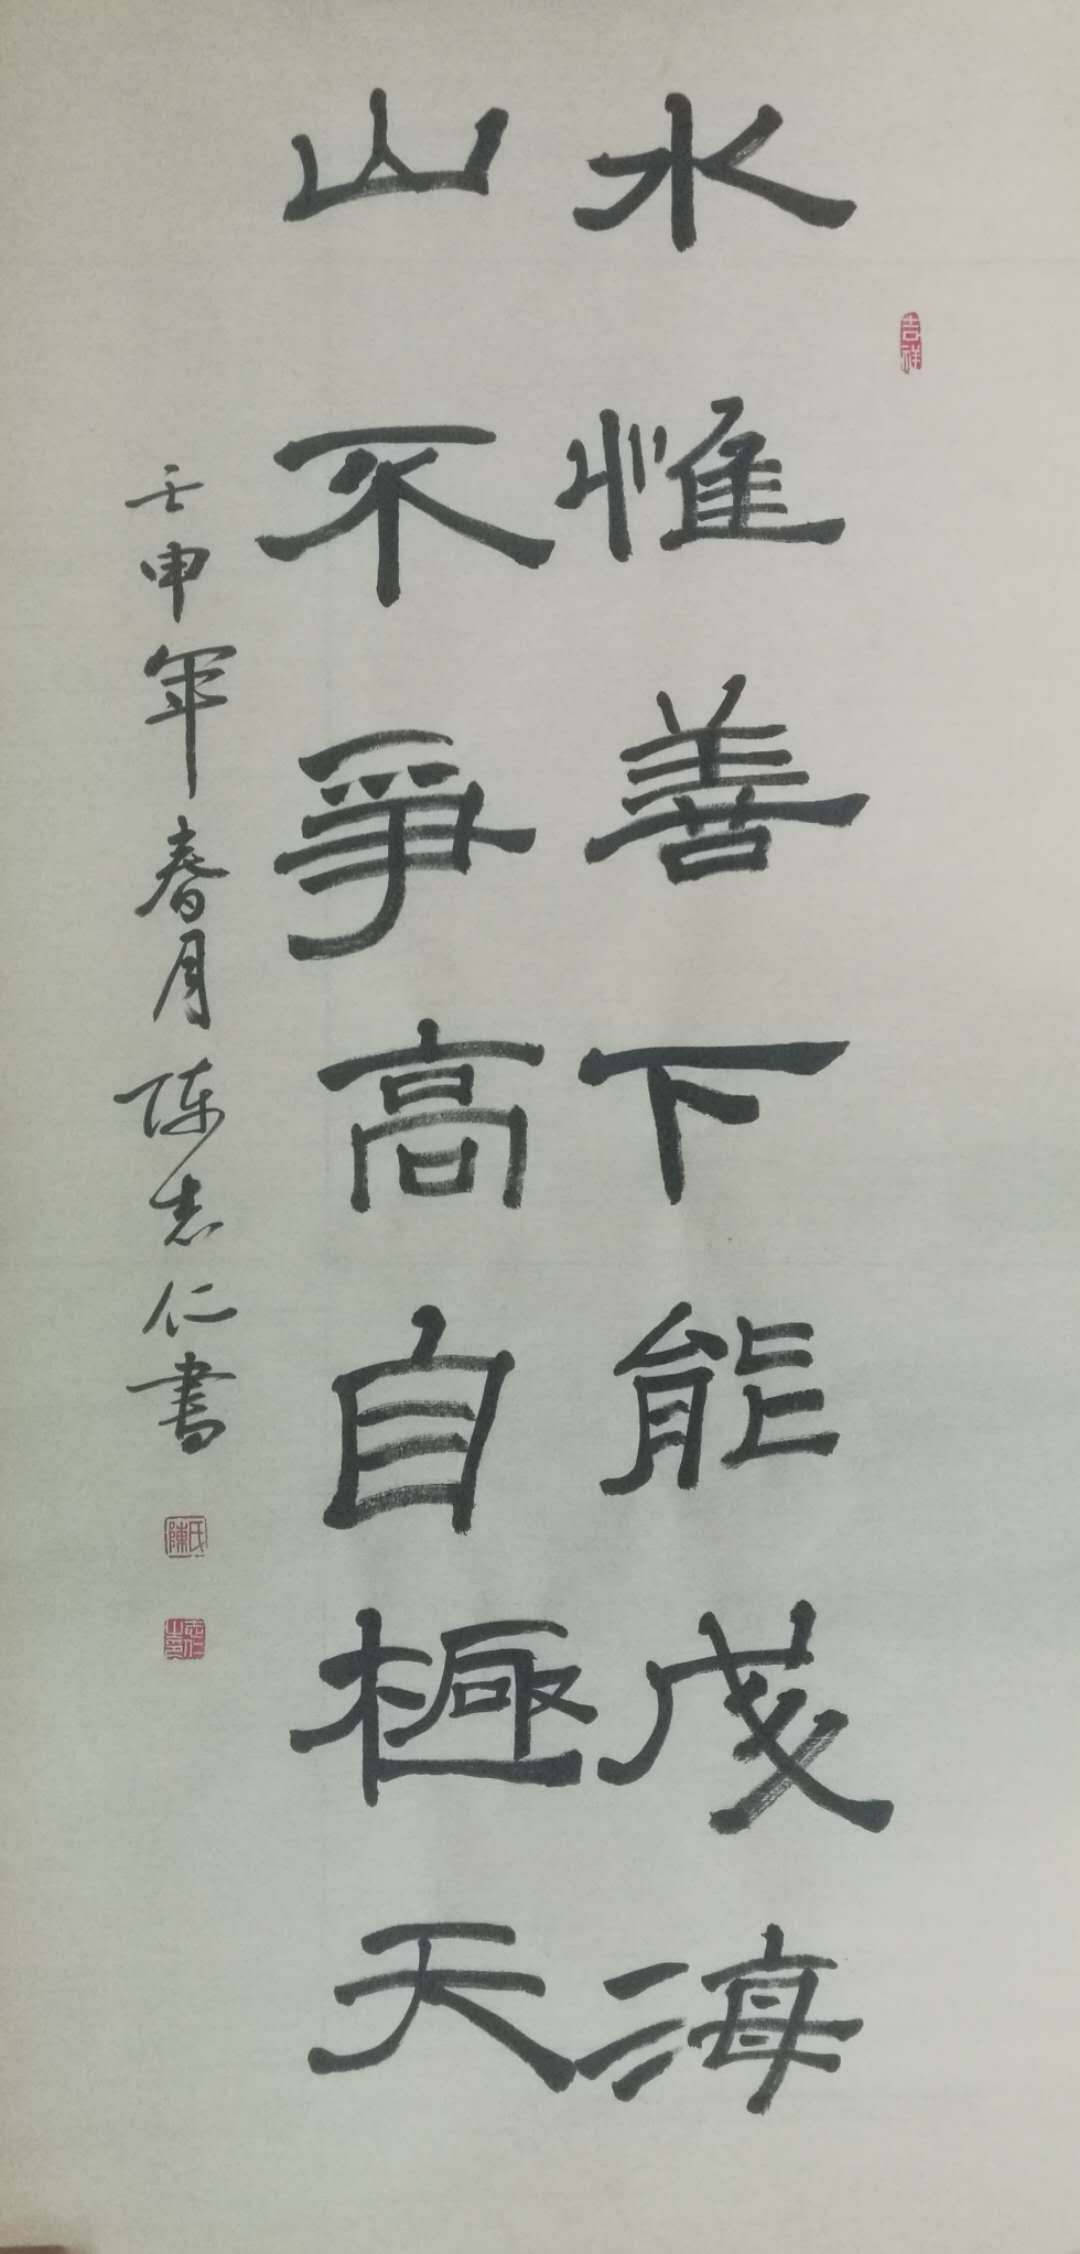 吉祥
水惟善下能成海
山不爭高自極天
壬申年春月陳志仁書
陳氏
志仁之印